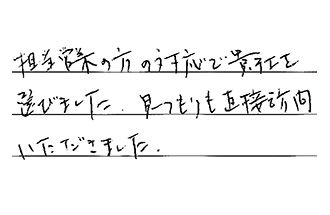 担当営業の方の対応で貴社を
選びました。見つもりも直接訪問
いただきました。